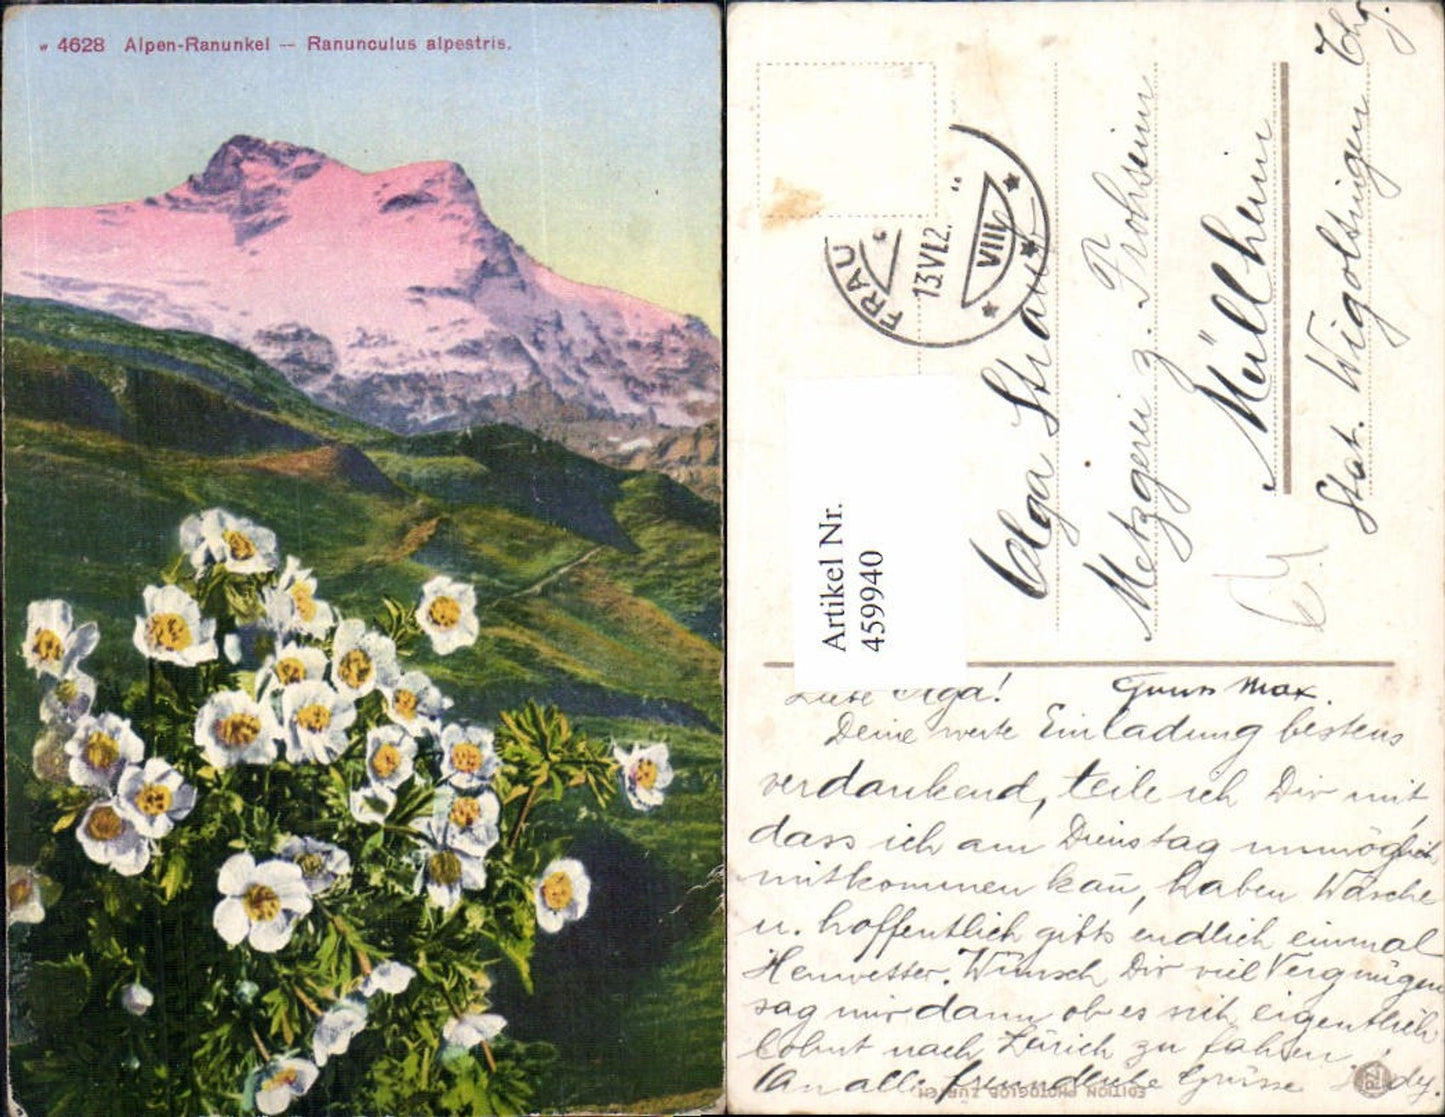 w 4628 Alpen-Ranunkel — Ranunculus alpestris.
FRAU
13.VI.2.
VIII
Olga Straub
Metzgerei z. Frohsinn
Müllheim
Stat. Wigoltingen Thg.
Artikel Nr.
459940
Liebe Olga! Max.
Deine werte Einladung bestens
verdankend, teile ich Dir mit,
dass ich am Dienstag unmöglich
mitkommen kañ, haben Wäsche
u. hoffentlich gibts endlich einmal
Heuwetter. Wünsch Dir viel Vergnügen
sag mir dann ob es sich eigentlich
lohnt nach Zürich zu fahren!
An alle freundliche Grüsse
EDITION PHOTOGLOB ZÜRICH